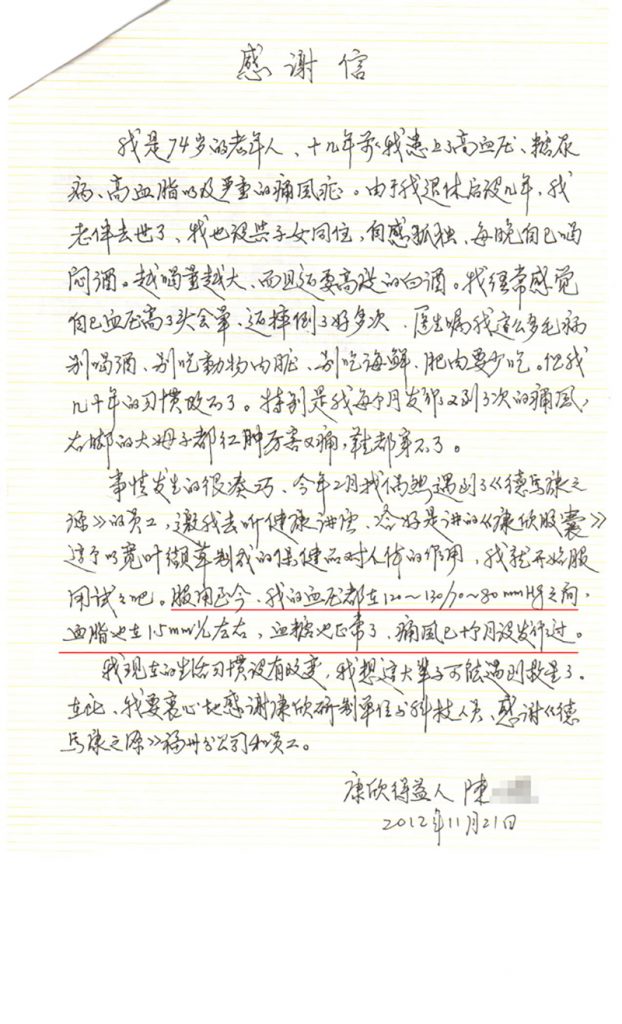 感谢信
我是74岁的老年人、十几年前我患上了高血压、糖尿
病、高血脂以及严重的痛风症。由于我退休后没几年,我
老伴去世了、我也没共子女同住,自感孤独、每晚自己喝
闷酒。越喝量越大、而且还要高度的白酒。我经常感觉
自己血压高了头会晕、还摔倒了好多次、医生嘱我这么多毛病
别喝酒、别吃動物内脏、别吃海鲜、肥肉要少吃。但我
几十年的习惯改不了。特别是我每个月发作2到3次的痛风,
右脚的大母子都红肿厉害又痛,鞋都穿不了。
事情发生的很凑巧、今年2月我偶然遇到了《德馬康之
源》的员工,邀我去听健康讲座、恰好是讲的《康欣胶囊》
这个以宽叶缬草制成的保健品对人体的作用,我就开始服
用试之吧。服用至今、我的血压都在120~130/70~80mmHg之间,
血脂也在1.5mm/L左右,血糖也正常了、痛风已个月没发作过。
我现在的生活习惯没有改变,我想这大辈子可能遇到救星了。
在此、我要衷心地感谢康欣研制单位与科技人员、感谢《德
馬康之源》福州分公司和员工。
康欣得益人 陳
2012年11月21日